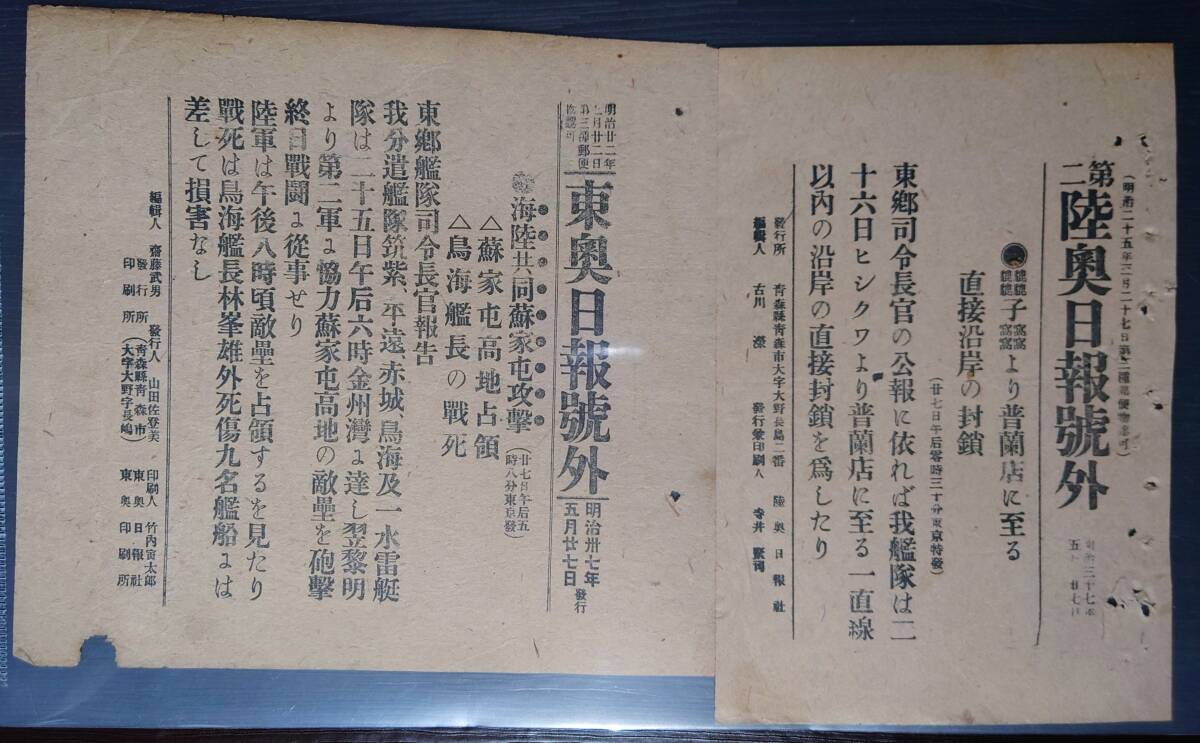 第二陸奧日報號外
(明治二十五年三月二十七日第三種郵便物認可)
五月廿七日
貔貅子窩より普蘭店に至る
直接沿岸の封鎖
(廿七日午后零時三十分東京特發)
東郷司令長官の公報に依れば我艦隊は二
十六日ヒシクワより普蘭店に至る一直線
以內の沿岸の直接封鎖を爲したり
發行所 靑森縣靑森市大字大野長島二番 陸奧日報社
編輯人 古川 發行兼印刷人 寺井
東奧日報號外
明治廿二年
七月廿二日
第三種郵便
明治卅七年
五月廿七日
發行
海陸共同蘇家屯攻擊
(廿七日午后五
時八分東京發)
△蘇家屯高地占領
△鳥海艦長の戰死
東郷艦隊司令長官報告
我分遣艦隊筑紫、平遠、赤城、鳥海及一水雷艇
隊は二十五日午后六時金州灣よ達し翌黎明
より第二軍よ協力蘇家屯高地の敵壘を砲擊
終日戰鬪よ從事せり
陸軍は午後八時頃敵壘を占領するを見たり
戰死は鳥海艦長林峯雄外死傷九名艦船よは
差して損害なし
編輯人 齋藤武男 發行人 山田佐登美 印刷人 竹內宙太郎
發行所 (靑森縣靑森市 東奧日報社
印刷所 大字大野字長嶋) 東奧印刷所